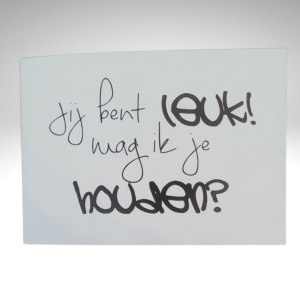 Jij bent leuk!
mag ik je
houden?